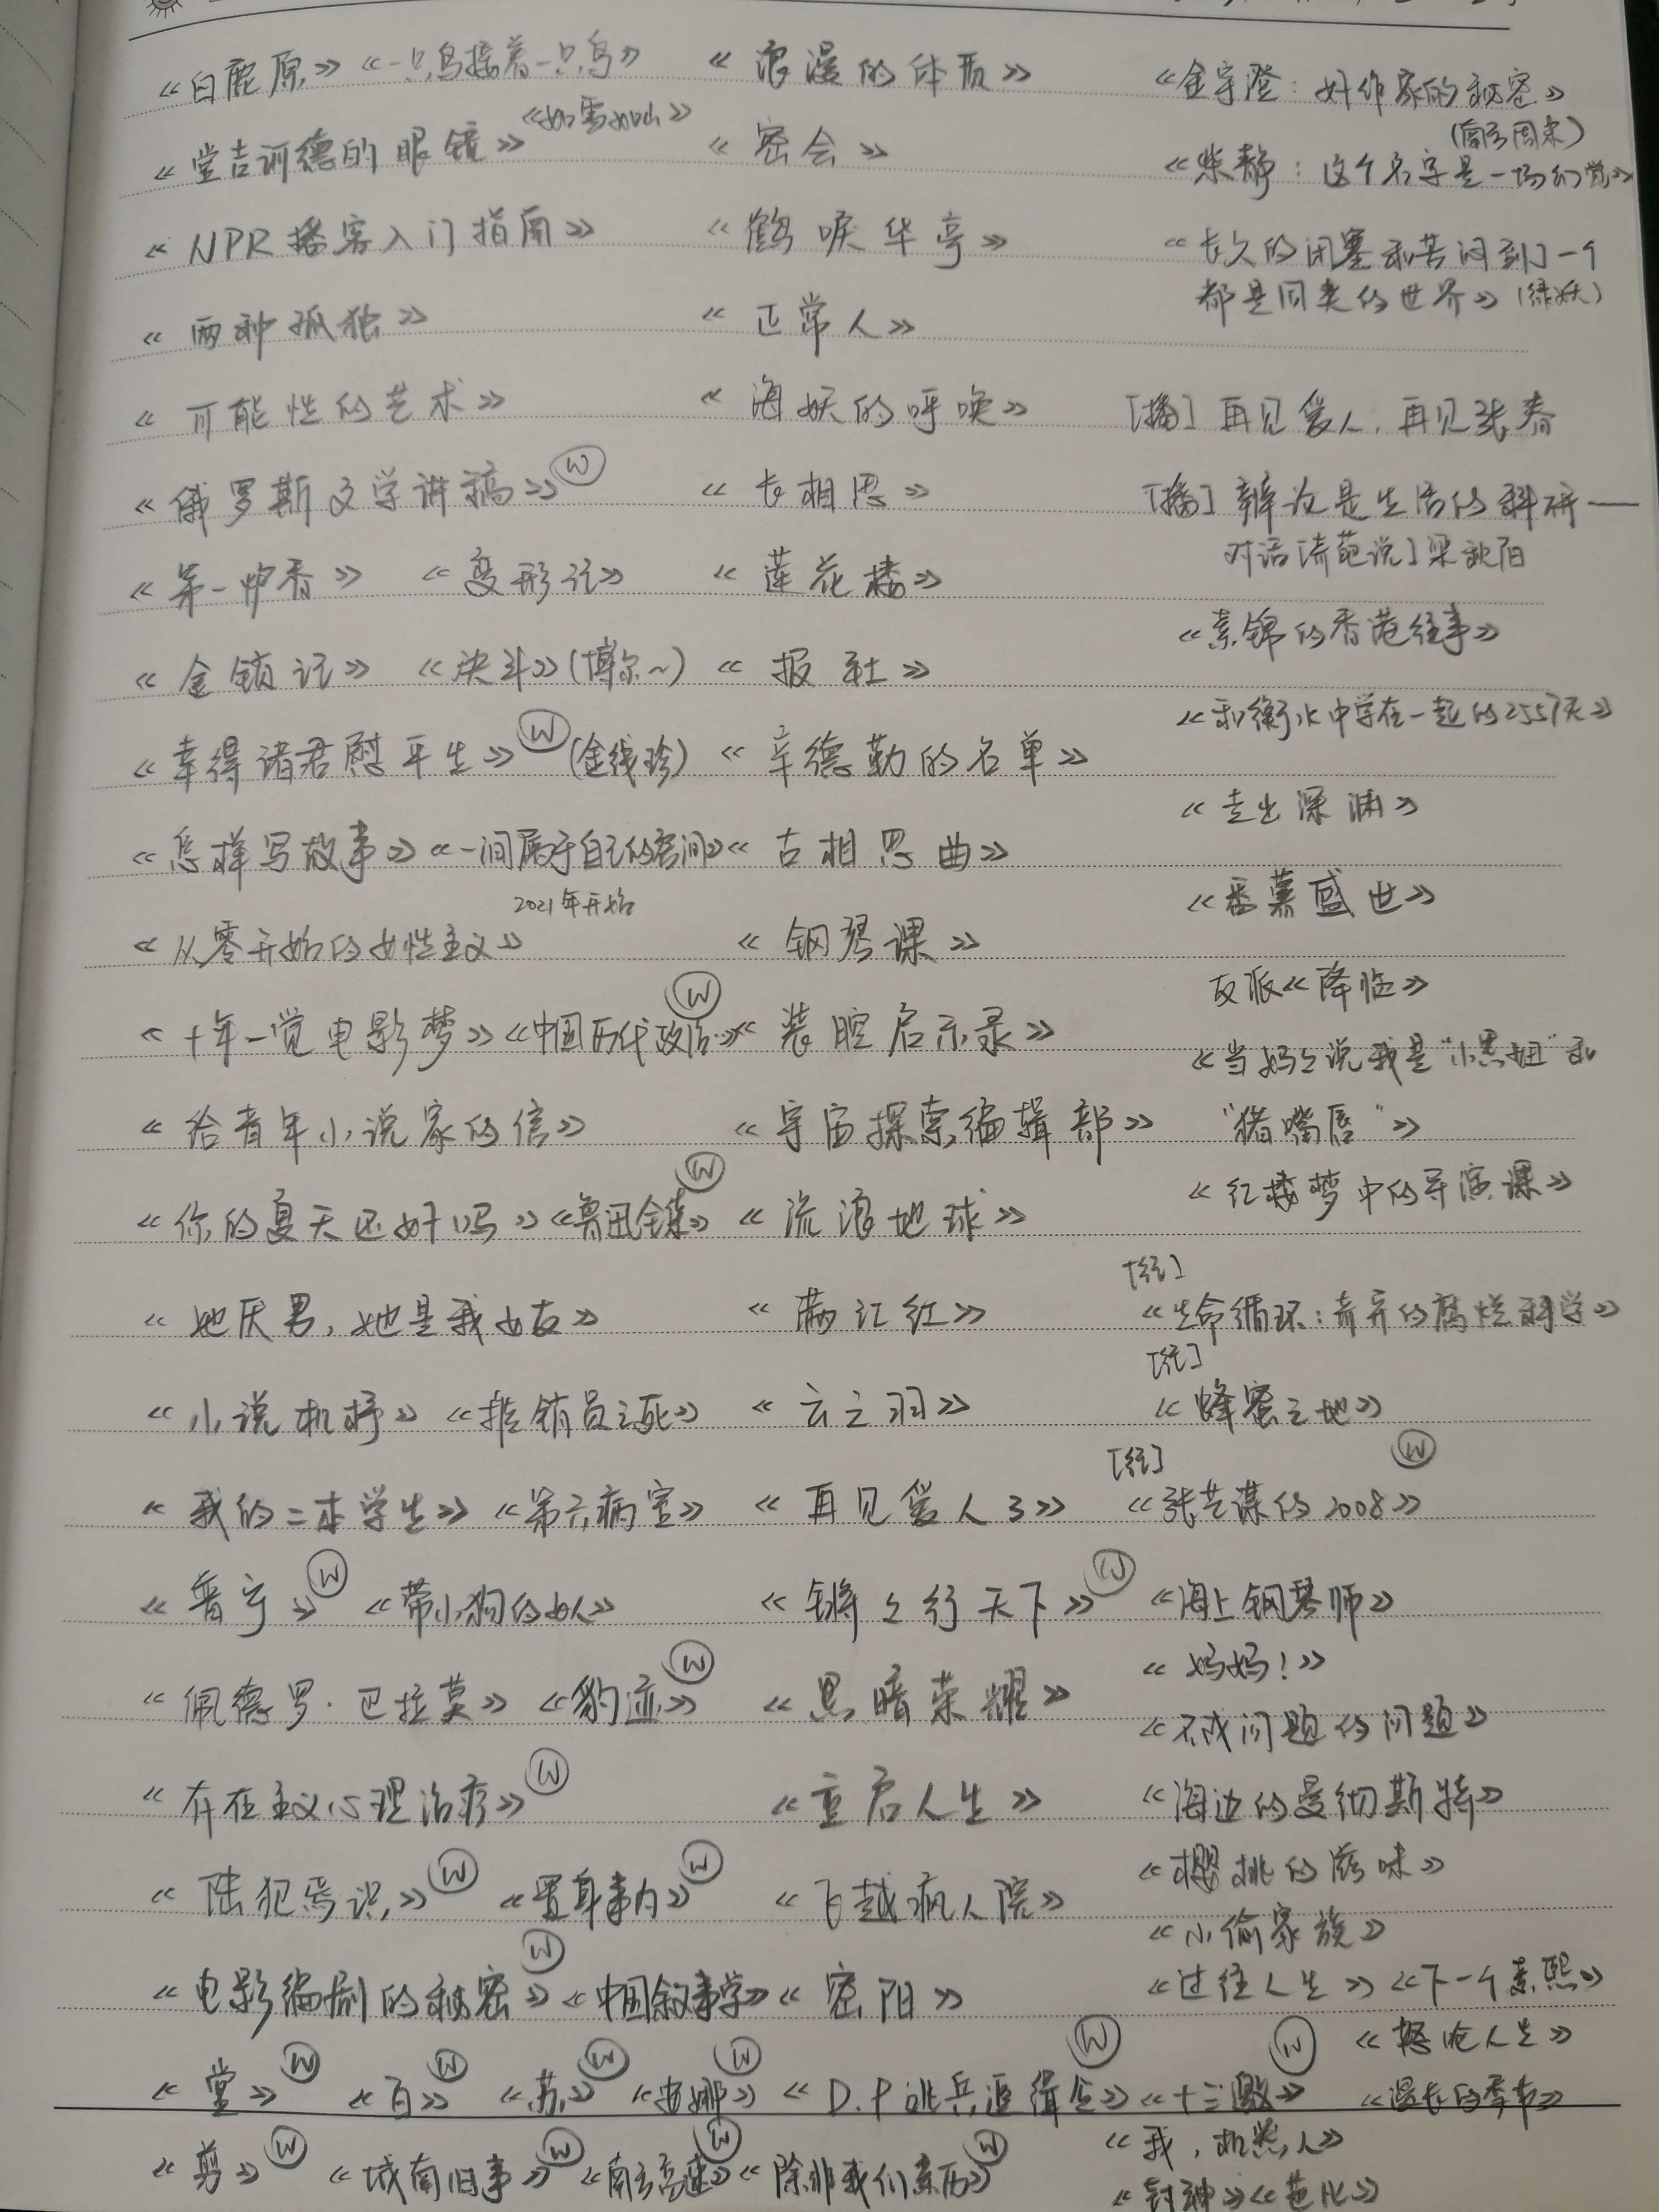 《白鹿原》《一只鸟接着一只鸟》
《堂吉诃德的眼镜》《如雪如山》
《NPR播客入门指南》
《两种孤独》
《可能性的艺术》
《俄罗斯文学讲稿》Ⓦ
《第一炉香》《变形记》
《金锁记》《决斗》(博尔~)
《幸得诸君慰平生》Ⓦ(金线珍)
《怎样写故事》《一间属于自己的房间》
2021年开始
《从零开始的女性主义》
《十年一觉电影梦》《中国历代政治..》Ⓦ
《给青年小说家的信》
《你的夏天还好吗》《鲁迅全集》Ⓦ
《她厌男，她是我女友》
《小说机杼》《推销员之死》
《我的二本学生》《第六病室》
《晋宁》Ⓦ《带小狗的女人》
《佩德罗·巴拉莫》《豹迹》Ⓦ
《存在主义心理治疗》Ⓦ
《陆犯焉识》Ⓦ《置身事内》Ⓦ
《电影编剧的秘密》Ⓦ《中国叙事学》
《堂》Ⓦ《百》Ⓦ《苏》Ⓦ《安娜》Ⓦ
《剪》Ⓦ《城南旧事》Ⓦ《南方高速》Ⓦ《除非我们亲历》Ⓦ
《浪漫的体质》
《密会》
《鹤唳华亭》
《正常人》
《海妖的呼唤》
《长相思》
《莲花楼》
《报社》
《辛德勒的名单》
《古相思曲》
《钢琴课》
《装腔启示录》
《宇宙探索编辑部》
《流浪地球》
《满江红》
《云之羽》
《再见爱人3》
《锵锵行天下》Ⓦ
《黑暗荣耀》
《重启人生》
《飞越疯人院》
《密阳》
《D.P逃兵追缉令》Ⓦ《十三邀》Ⓦ
《金宇澄：好作家的秘密》
(南方周末)
《柴静：这个名字是一场幻觉》
《长久的闭塞和苦闷到了一个
都是同类的世界》(绿妖)
[播]再见爱人，再见张春
[播]辩论是生活的科研——
对话[奇葩说]梁秋阳
《素锦的香港往事》
《和衡水中学在一起的2557天》
《走出深渊》
《番薯盛世》
反派《降临》
《当妈妈说我是“小黑妞”和
“猪嘴唇”》
《红楼梦中的导演课》
[纪]
《生命循环：奇异的腐烂科学》
[纪]
《蜂蜜之地》
[纪]
《张艺谋的2008》Ⓦ
《海上钢琴师》
《妈妈！》
《不成问题的问题》
《海边的曼彻斯特》
《樱桃的滋味》
《小偷家族》
《过往人生》《下一个素熙》
《怒呛人生》
《漫长的季节》
《我，机器人》
《封神》《芭比》